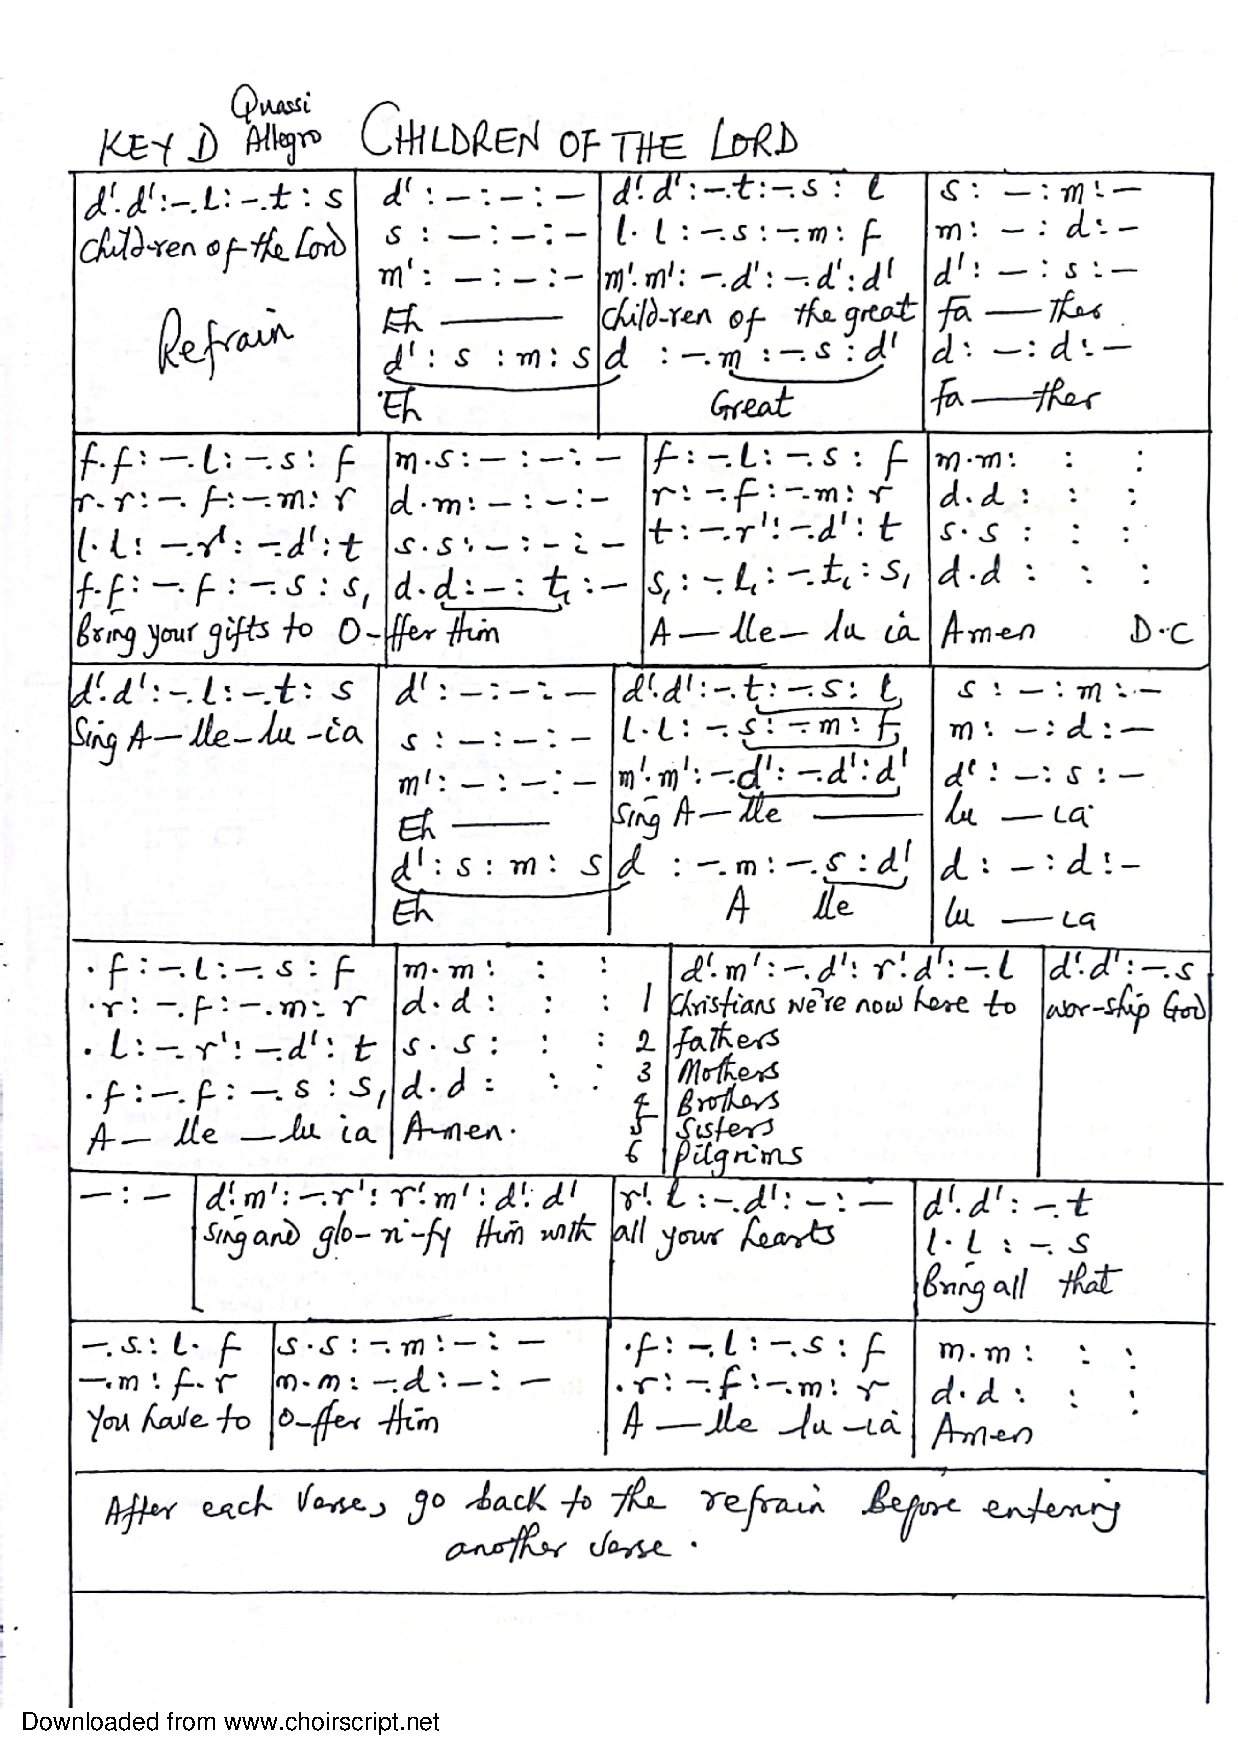 Quassi
KEY D Allegro CHILDREN OF THE LORD
d'.d':-.l:-.t:s | d':-:-:- | d'.d':-.t:-.s:l | s:-:m:-
Child-ren of the Lord | s:-:-:- | l.l:-.s:-.m:f | m:-:d:-
m':-:-:- | m'.m':-.d':-.d':d' | d':-:s:-
Refrain | Eh —— | Child-ren of the great | Fa — ther
d':s:m:s | d:-.m:-.s:d' | d:-:d:-
Eh | Great | Fa — ther
f.f:-.l:-.s:f | m.s:-:-:- | f:-.l:-.s:f | m.m: : :
r.r:-.f:-.m:r | d.m:-:-:- | r:-.f:-.m:r | d.d: : :
l.l:-.r':-.d':t | s.s:-:-:- | t:-.r':-.d':t | s.s: : :
f.f:-.f:-.s:s, | d.d:-:t,:- | s,:-.l,:-.t,:s, | d.d: : :
Bring your gifts to | O-ffer Him | A — lle — lu ia | Amen D.C
d'.d':-.l:-.t:s | d':-:-:- | d'.d':-.t:-.s:l | s:-:m:-
Sing A — lle — lu - ia | s:-:-:- | l.l:-.s:-.m:f | m:-:d:-
m':-:-:- | m'.m':-.d':-.d':d' | d':-:s:-
Eh —— | Sing A — lle —— | lu — ia
d':s:m:s | d:-.m:-.s:d' | d:-:d:-
Eh | A lle | lu — ia
.f:-.l:-.s:f | m.m: : : | d'.m':-.d':r'.d':-.l | d'.d':-.s
.r:-.f:-.m:r | d.d: : : | 1 Christians we're now here to | wor-ship God
.l:-.r':-.d':t | s.s: : : | 2 Fathers
.f:-.f:-.s:s, | d.d: : : | 3 Mothers
A — lle — lu ia | A-men. | 4 Brothers
5 Sisters
6 Pilgrims
-:- | d'.m':-.r':r'.m':d'.d' | r'.l:-.d':-:- | d'.d':-.t
Sing and glo-ri-fy Him with | all your hearts | l.l:-.s
Bring all that
-.s:l.f | s.s:-.m:-:- | .f:-.l:-.s:f | m.m: : :
-.m:f.r | m.m:-.d:-:- | .r:-.f:-.m:r | d.d: : :
you have to | O-ffer Him | A — lle - lu - ia | Amen
After each verse, go back to the refrain before entering
another verse.
Downloaded from www.choirscript.net